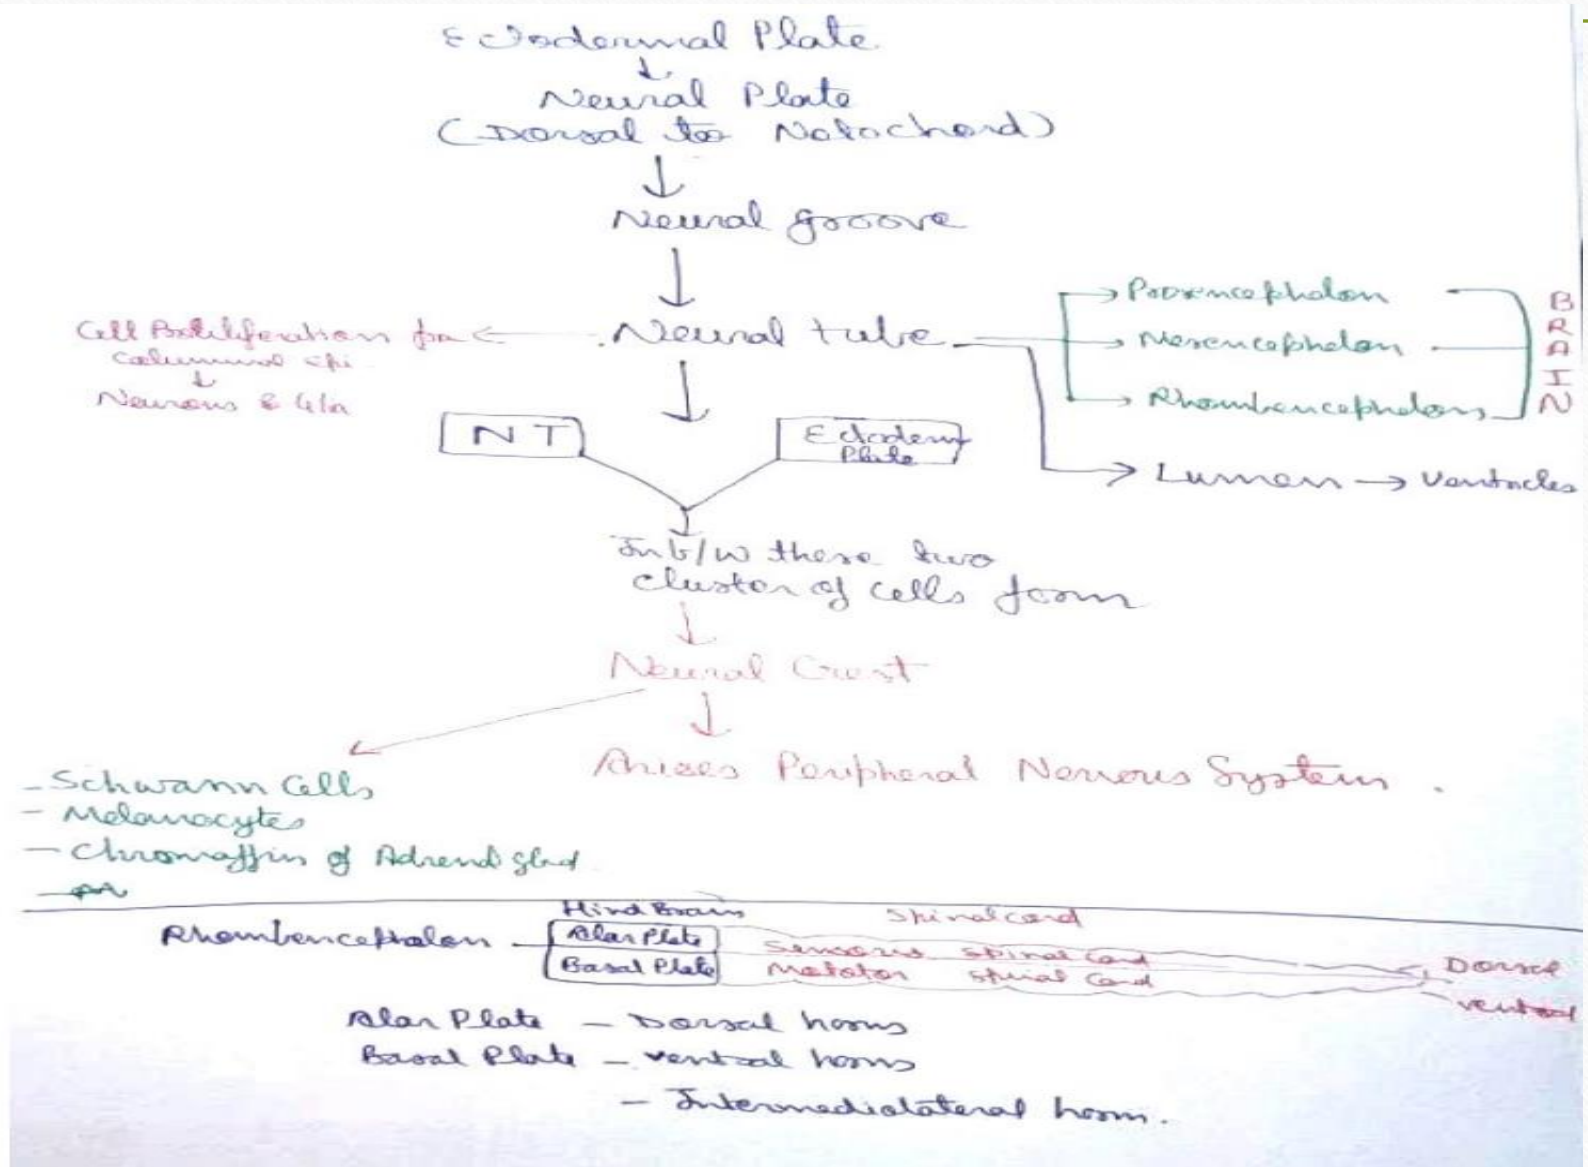 Ectodermal Plate
Neural Plate
(Dorsal to Notochord)
Neural groove
Neural tube
Cell Proliferation for
Columnal epi
Neurons & Glia
Prosencephalon
Mesencephalon
Rhombencephelons
BRAIN
Lumen → Ventricles
NT
Ectoderm
Plate
In b/w these two
cluster of cells form
Neural Crest
Arises Peripheral Nervous System.
- Schwann Cells
- Melanocytes
- Chromaffin of Adrenal gland
Hind Brain
Spinal cord
Rhombencephalon
Alar Plate
Sensoris spinal cord
Basal Plate
spinal cord
Dorsal
ventral
Alar Plate - Dorsal horns
Basal Plate - ventral horns
- Intermediolateral horn.